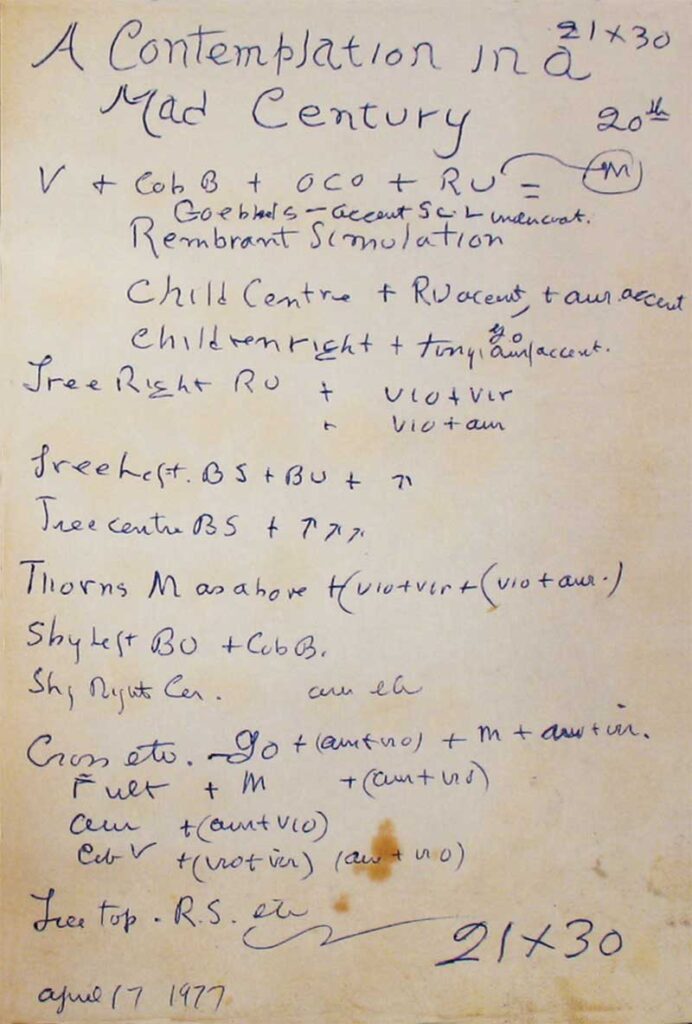 A Contemplation in a 21 x 30
Mad Century 20th
V + Cob B + OCO + RU = M
Goebbels - accent
Rembrant Simulation
Child Centre + RU accent, + aur. accent
Children right + tiny, yo aur/accent.
Tree Right RU + VIO + VIR
+ VIO + aur
Tree Left. BS + BU + ↗
Tree centre BS + ↑ ↗ ↗
Thorns M as above + (VIO + VIR + (VIO + aur.)
Sky Left BU + Cob B.
Sky Right Cer. aur etc
Cross etc. - yo + (aur + vio) + M + aur + vir.
Fult + M + (aur + vio)
aur + (aur + VIO)
Cob V + (vio + vir) (aur + vio)
Tree top. R.S. etc
21 X 30
april 17 1977